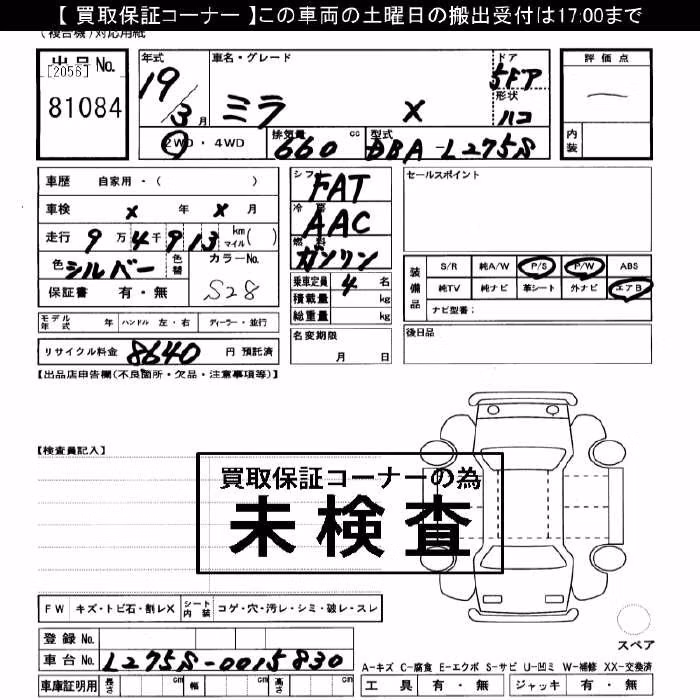 【 買取保証コーナー 】この車両の土曜日の搬出受付は17:00まで
(複合機)対応用紙
出品 No.
[2056]
81084
年式
19
3月
車名・グレード
ミラ X
ドア
5ドア
形状
ハコ
評価点
内装
2WD・4WD
排気量
660 cc
型式
DBA-L275S
車歴 自家用・( )
車検 X 年 X 月
走行 9万4千913 km マイル( )
色 シルバー
色替
カラーNo.
S28
保証書 有・無
シフト
FAT
冷房
AAC
燃料
ガソリン
乗車定員 4 名
積載量 kg
総重量 kg
セールスポイント
装備品
S/R 純A/W P/S P/W ABS
純TV 純ナビ 革シート 外ナビ エアB
ナビ型番：
モデル年式 年 ハンドル 左・右 ディーラー・並行
リサイクル料金 8640 円 預託済
名変期限
月 日
後日品
【出品店申告欄(不良箇所・欠品・注意事項等)】
【検査員記入】
買取保証コーナーの為
未検査
FW キズ・トビ石・割レX
シート内装 コゲ・穴・汚レ・シミ・破レ・スレ
登録 No.
車台 No. L275S-0015830
車庫証明用 長さ cm 幅 cm 高さ cm
スペア
A-キズ C-腐食 E-エクボ S-サビ U-凹ミ W-補修 XX-交換済
工具 有・無 ジャッキ 有・無